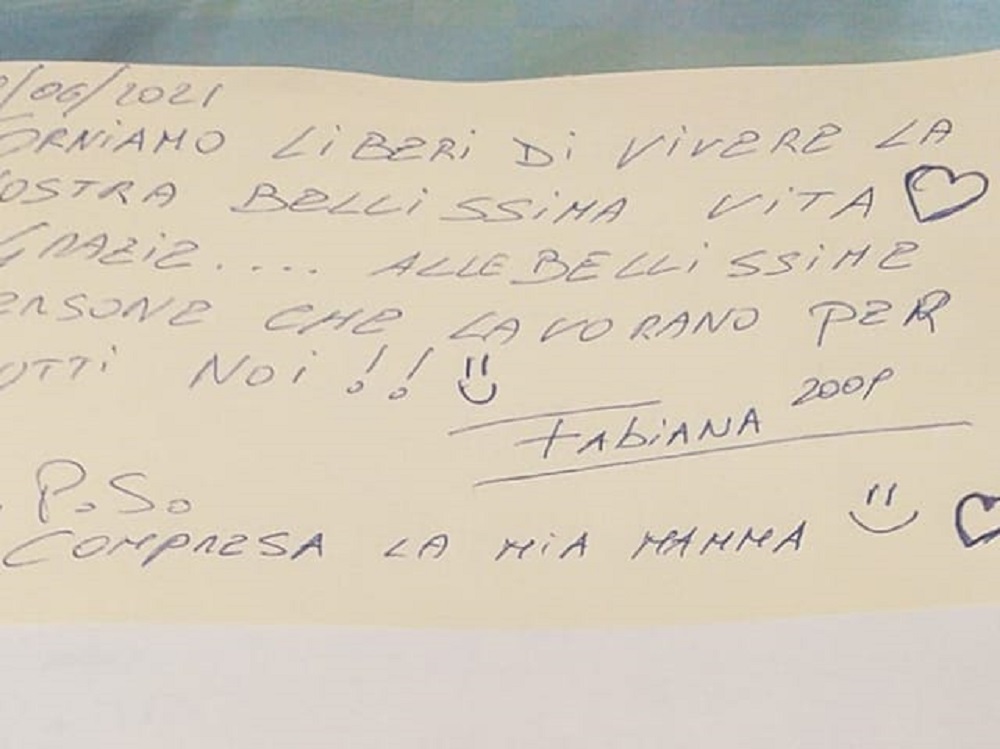 /06/2021
ORNIAMO LIBERI DI VIVERE LA
OSTRA BELLISSIMA VITA
GRAZIE.... ALLE BELLISSIME
ERSONE CHE LAVORANO PER
UTTI NOI !!
FABIANA
P.S.
COMPRESA LA MIA MAMMA